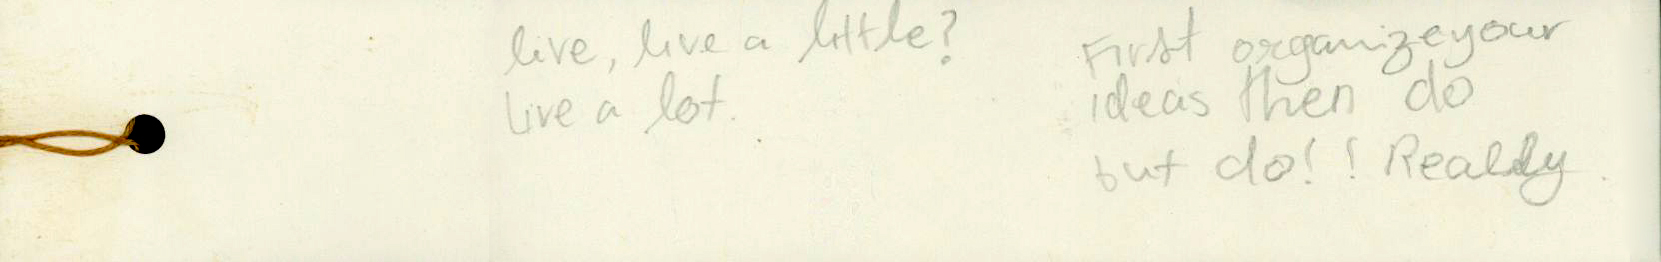 live, live a little?
Live a lot.
First organize your
ideas then do
but do!! Really.